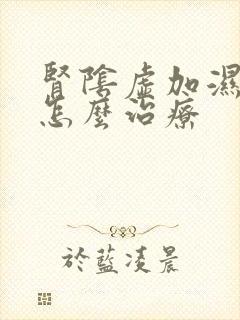 腎陰虛加濕
怎麼治療
於藍凌晨